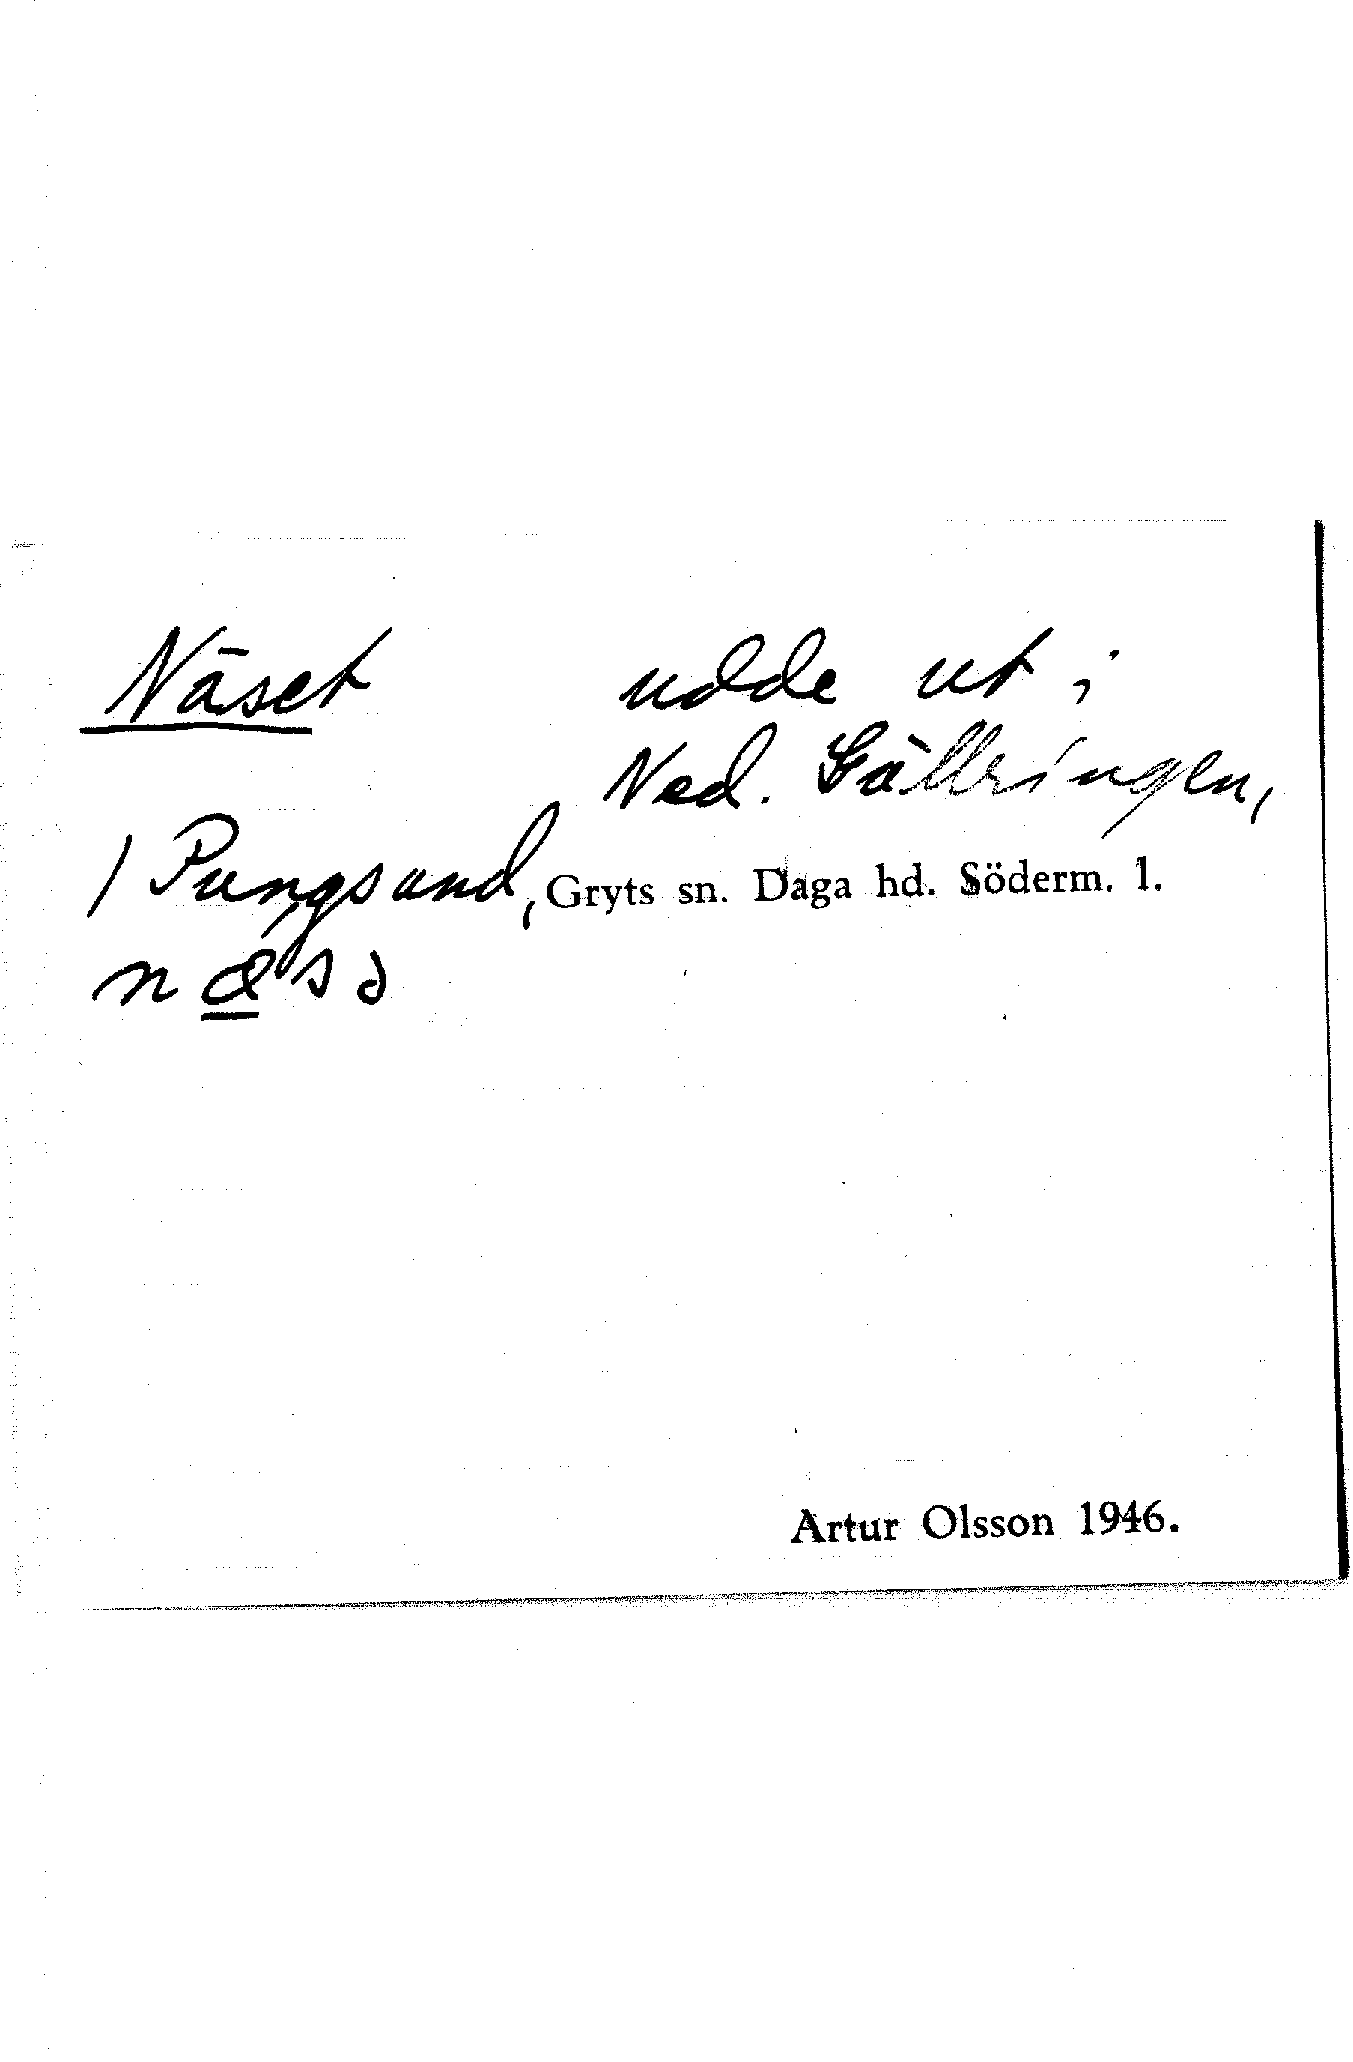 Näset udde ut i
Ned. Gällringen,
/ Pungsund, Gryts sn. Daga hd. Söderm. l.
næ̲sə
Artur Olsson 1946.